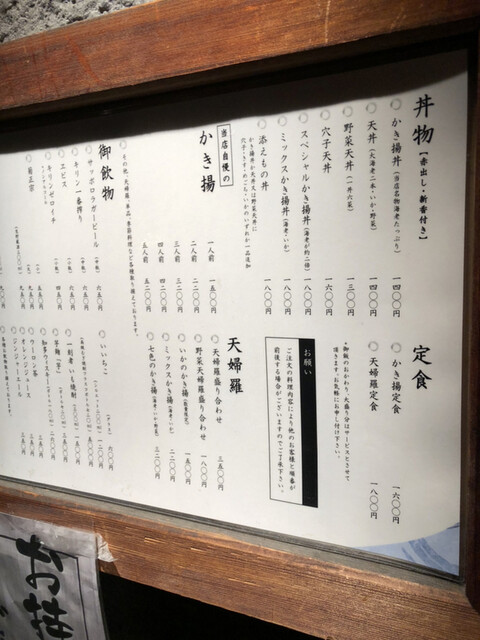 丼物【赤出し・新香付き】
かき揚丼（当店名物海老たっぷり） 一四〇〇円
天丼（大海老二本・いか・野菜） 一四〇〇円
野菜天丼（一丼六菜） 一三〇〇円
穴子天丼 一六〇〇円
スペシャルかき揚丼（海老が約二倍） 一八〇〇円
ミックスかき揚丼（海老・いか） 一八〇〇円
添えもの丼 一八〇〇円
かき揚丼か天丼又は野菜天丼に
穴子・きす・めごち・いかのいずれか一品追加
定食
かき揚定食 一六〇〇円
天婦羅定食 一八〇〇円
・御飯のおかわり、大盛り分はサービスとさせて
頂きます。お気軽にお申し付け下さい。
お願い
ご注文の料理内容により他のお客様と順番が
前後する場合がございますのでご了承下さい。
当店自慢の
かき揚
一人前 一五〇〇円
二人前 二二〇〇円
三人前 三二〇〇円
四人前 四二〇〇円
五人前 五二〇〇円
その他、天婦羅一単品、季節料理など各種取り揃えております。
天婦羅
天婦羅盛り合わせ 三五〇〇円
野菜天婦羅盛り合わせ 一八〇〇円
いかのかき揚 一五〇〇円
ミックスかき揚（海老・いか） 二二〇〇円
七色のかき揚（海老・いか・野菜） 三二〇〇円
御飲物
サッポロラガービール 六五〇円
キリン一番搾り 六五〇円
エビス
キリンゼロイチ
菊正宗
いいちこ
一刻者いも焼酎
芋麹「芋」
知多ウィスキー
ウーロン茶
オレンジジュース
ジンジャーエール
お持